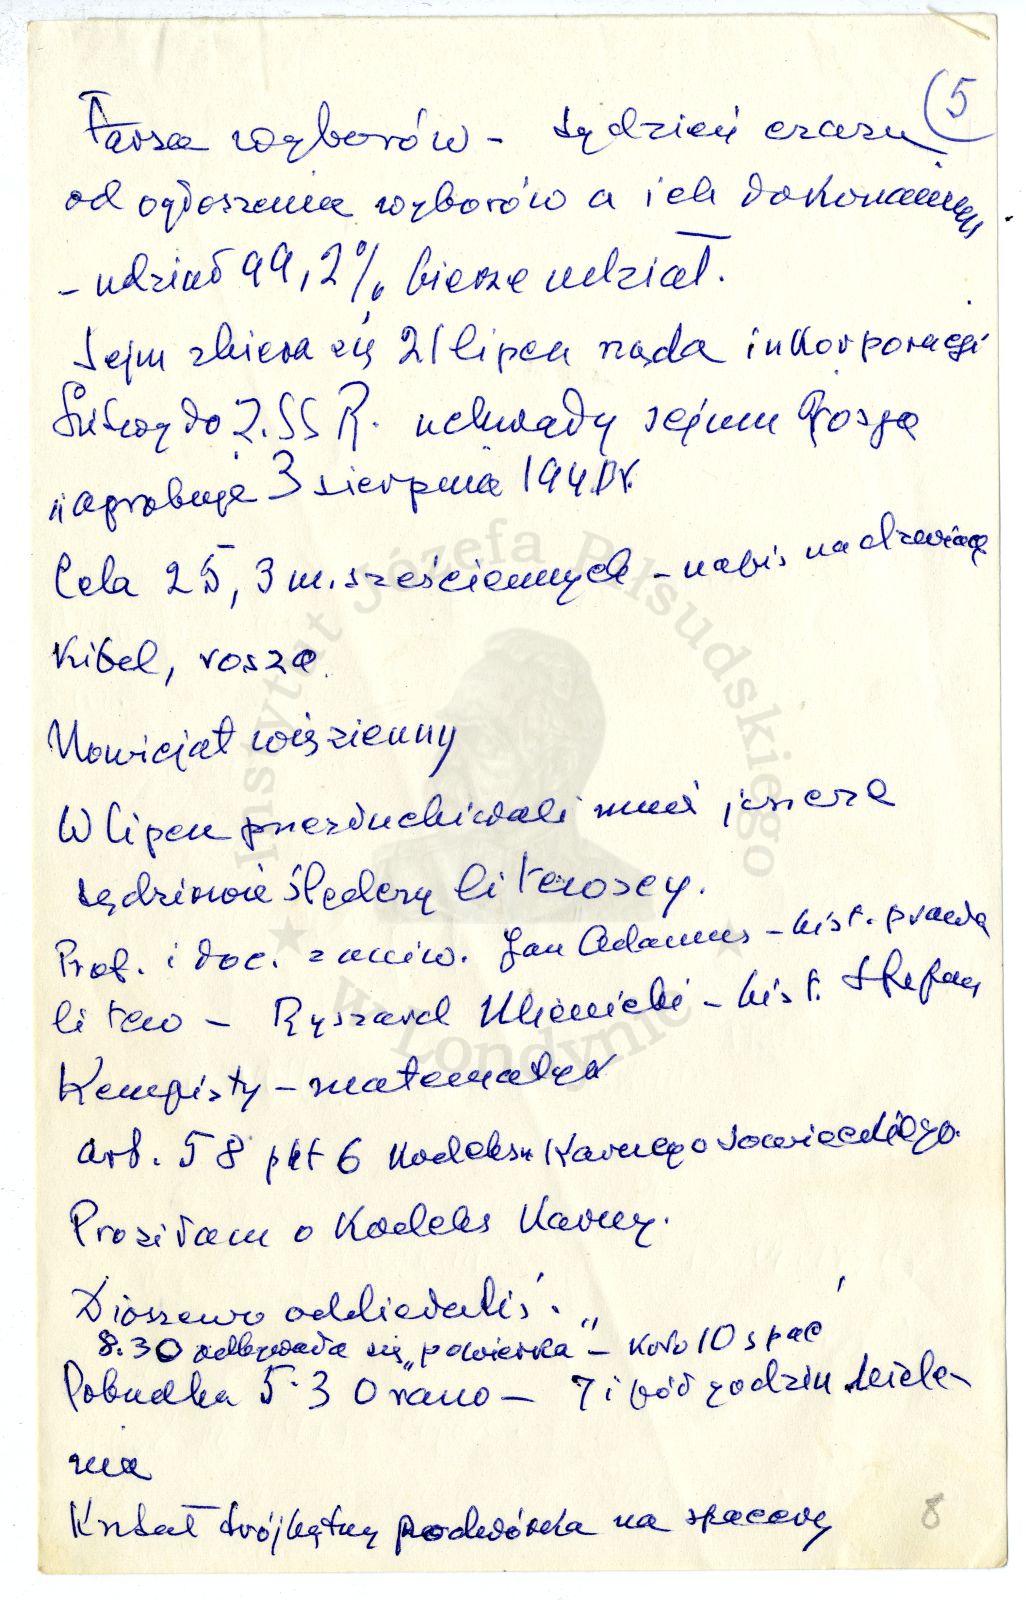 5
Farsa wyborów – tydzień czasu
od ogłoszenia wyborów a ich dokonaniem
– udział 99,2% bierze udział.
Sejm zbiera się 21 lipca żąda inkorporacji
Litwy do Z.SSR. uchwały sejmu Rosja
"aprobuje 3 sierpnia 1940r.
Cela 25,3 m. sześciennych – napis na drzwiach
Kibel,
Nowicjat więzienny
W lipcu przesłuchiwali mnie jeszcze
sędziowie śledczy litewscy.
Prof. i doc. uniw. Jan Adamus – hist. prawa
litew – Ryszard Mienicki – hist. Stefan
Kempisty – matematyk
art. 58 pkt 6 Kodeksu Karnego sowieckiego.
Prosiłam o Kodeks Karny.
8.30 odbywała się „powierka" – koło 10 spać
Pobudka 5.30 rano – 7 i pół godzin
nia
Kształt trójkątny podwórka na spacery
8
Instytut Józefa Piłsudskiego
w Londynie